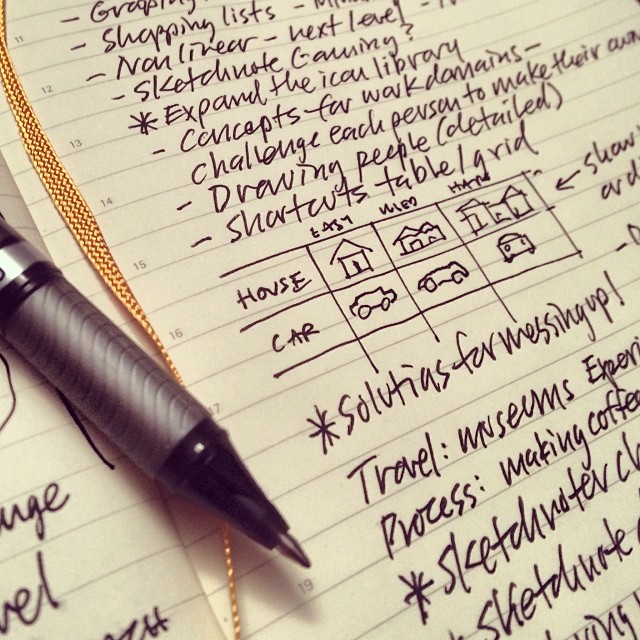 - Graping
- Shopping lists -
- Nonlinear - next level -
- Sketchnote Gaming?
* Expand the icon library
- Concepts for work domains -
challenge each person to make their own
- Drawing people (detailed)
- Shortcuts table/grid
EASY MED HARD
HOUSE
CAR
* Solutias for messing up!
Travel: museums Experi
Process: making coffee
* Sketchnoter cl
* Sketchnote
ving
11
12
13
14
15
16
17
19
vel